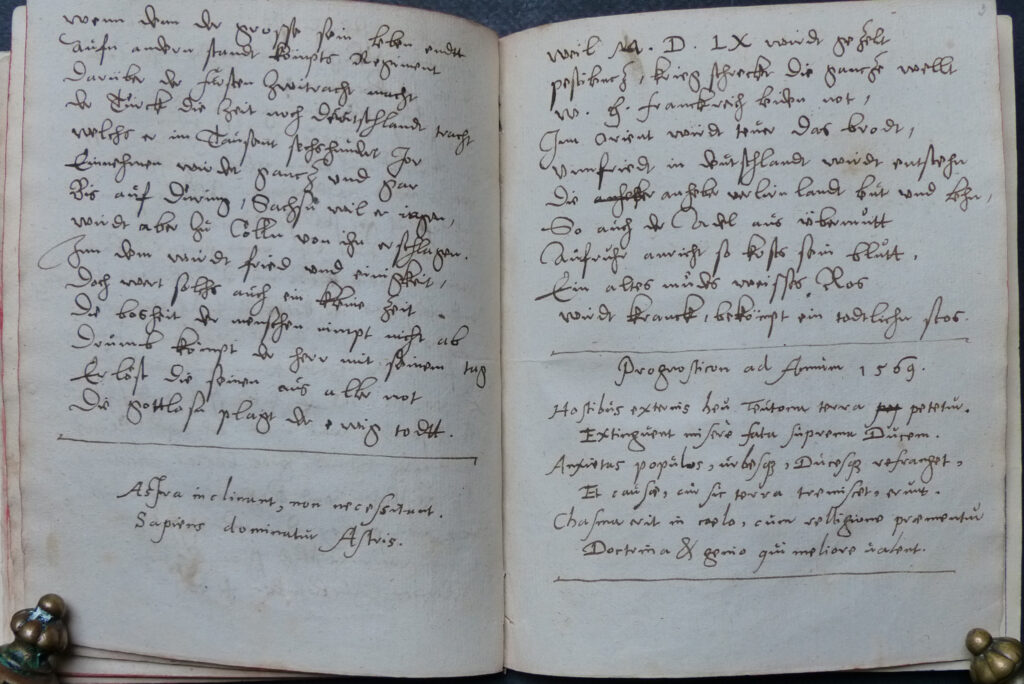 wenn denn der grosse sein leben endtt
Aufn andern standt kömpts Regiment
Darüber der fürsten Zwitracht macht
der Türck die Zeit noch deütschlandt tracht
welchs er im Tausent sechshündert Jor
Einnehmen würdet gancz und gar
Bis auf Düring, Sachsn wil er
würdt aber zu Cölln von ihn erschlagen.
Jnn dem würdt fried und einigkeit,
Doch wert solchs auch ein kleine Zeit
die bosheit der menschen nimpt nicht ab
Drümb kömpt der herr mit seinem tag
Erlöst die seinen aus aller not
die gottlosn plagt der ewig todtt.
Astra inclinant, non necessitant.
Sapiens dominatur Astris.
weil M. D. LX würdt gezelt
pestilencz, krieg schreckt die gancze wellt
franckreich leiden not,
Jm Orient würdt teuer das brodt,
vnnfriedt in deutschlandt würdt entstehn
Die anheber verliern landt
So auch der Adel aus übermutt
Aufruhr anricht so kosts sein blutt,
Ein altes müdes weisses Ros
würdt kranck, bekömpt ein todtlichn stos.
Prognosticon ad Annum 1569.
Hostibus externis heu Teutona terra petetur.
Extinguent miserè fata suprema Ducem.
Anxietas populos, urbesq, Ducesq refranget,
Et causæ, cur sic terra tremiscet, erunt.
Chasma erit in coelo, cum relligione prementur
Doctrina & genio qui meliore valent.